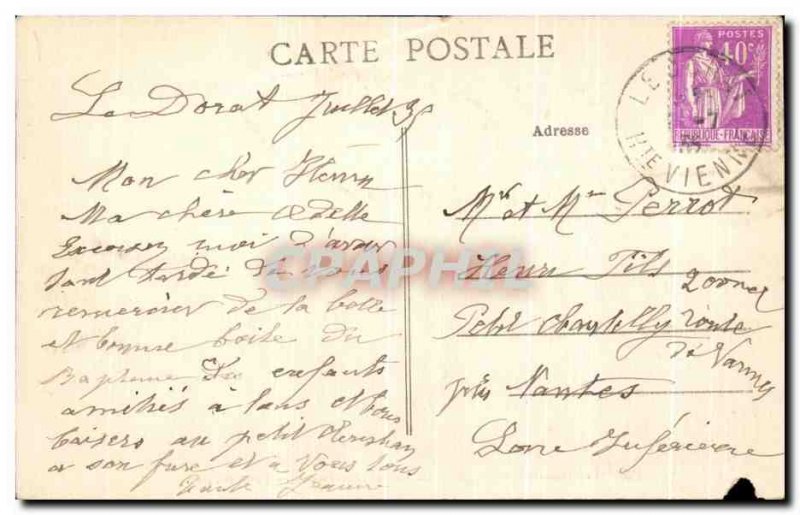 CARTE POSTALE
POSTES
40c
REPUBLIQUE FRANÇAISE
Hte VIENNE
Le Dorat Juillet
Adresse
Mon cher Henri
Ma chère Odelle
Excusez moi d'avoir
tant tardé de vous
remercier de la belle
et bonne boite du
Bapteme des enfants
amitiés à tous et bons
baisers au petit
a son frere et a vous tous
CPAPHIL
Mr et Mme Perrot
Henri Fils
Petit Chantilly route
de Vannes
près Nantes
Loire Inférieure